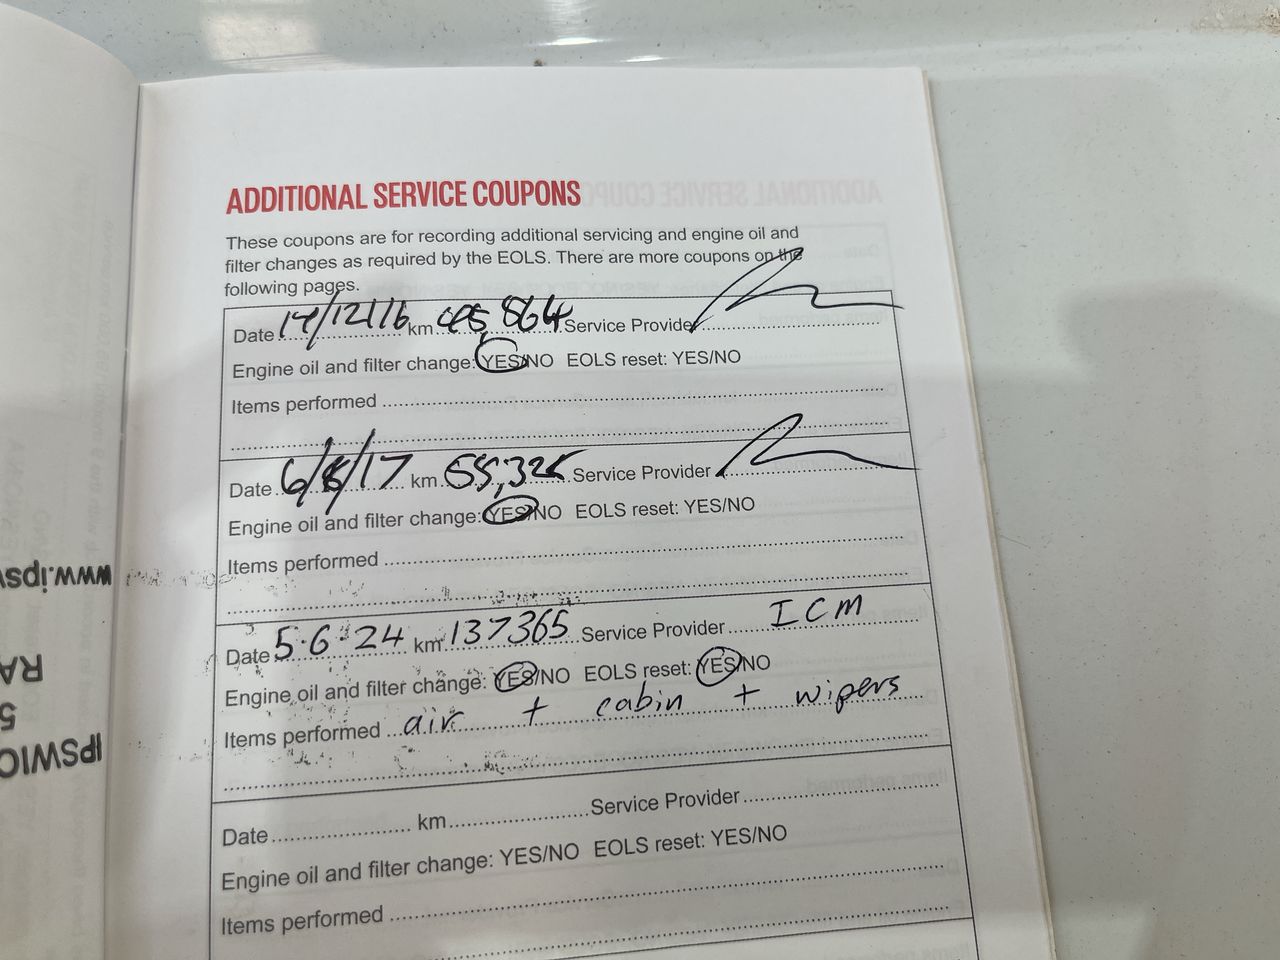 ADDITIONAL SERVICE COUPONS
These coupons are for recording additional servicing and engine oil and
filter changes as required by the EOLS. There are more coupons on the
following pages.
Date 17/12/16 km 45,864 Service Provider
Engine oil and filter change: YES/NO EOLS reset: YES/NO
Items performed
Date 6/6/17 km 55,325 Service Provider
Engine oil and filter change: YES/NO EOLS reset: YES/NO
Items performed
Date 5.6.24 km 137365 Service Provider ICM
Engine oil and filter change: YES/NO EOLS reset: YES/NO
Items performed air + cabin + wipers
Date km Service Provider
Engine oil and filter change: YES/NO EOLS reset: YES/NO
Items performed